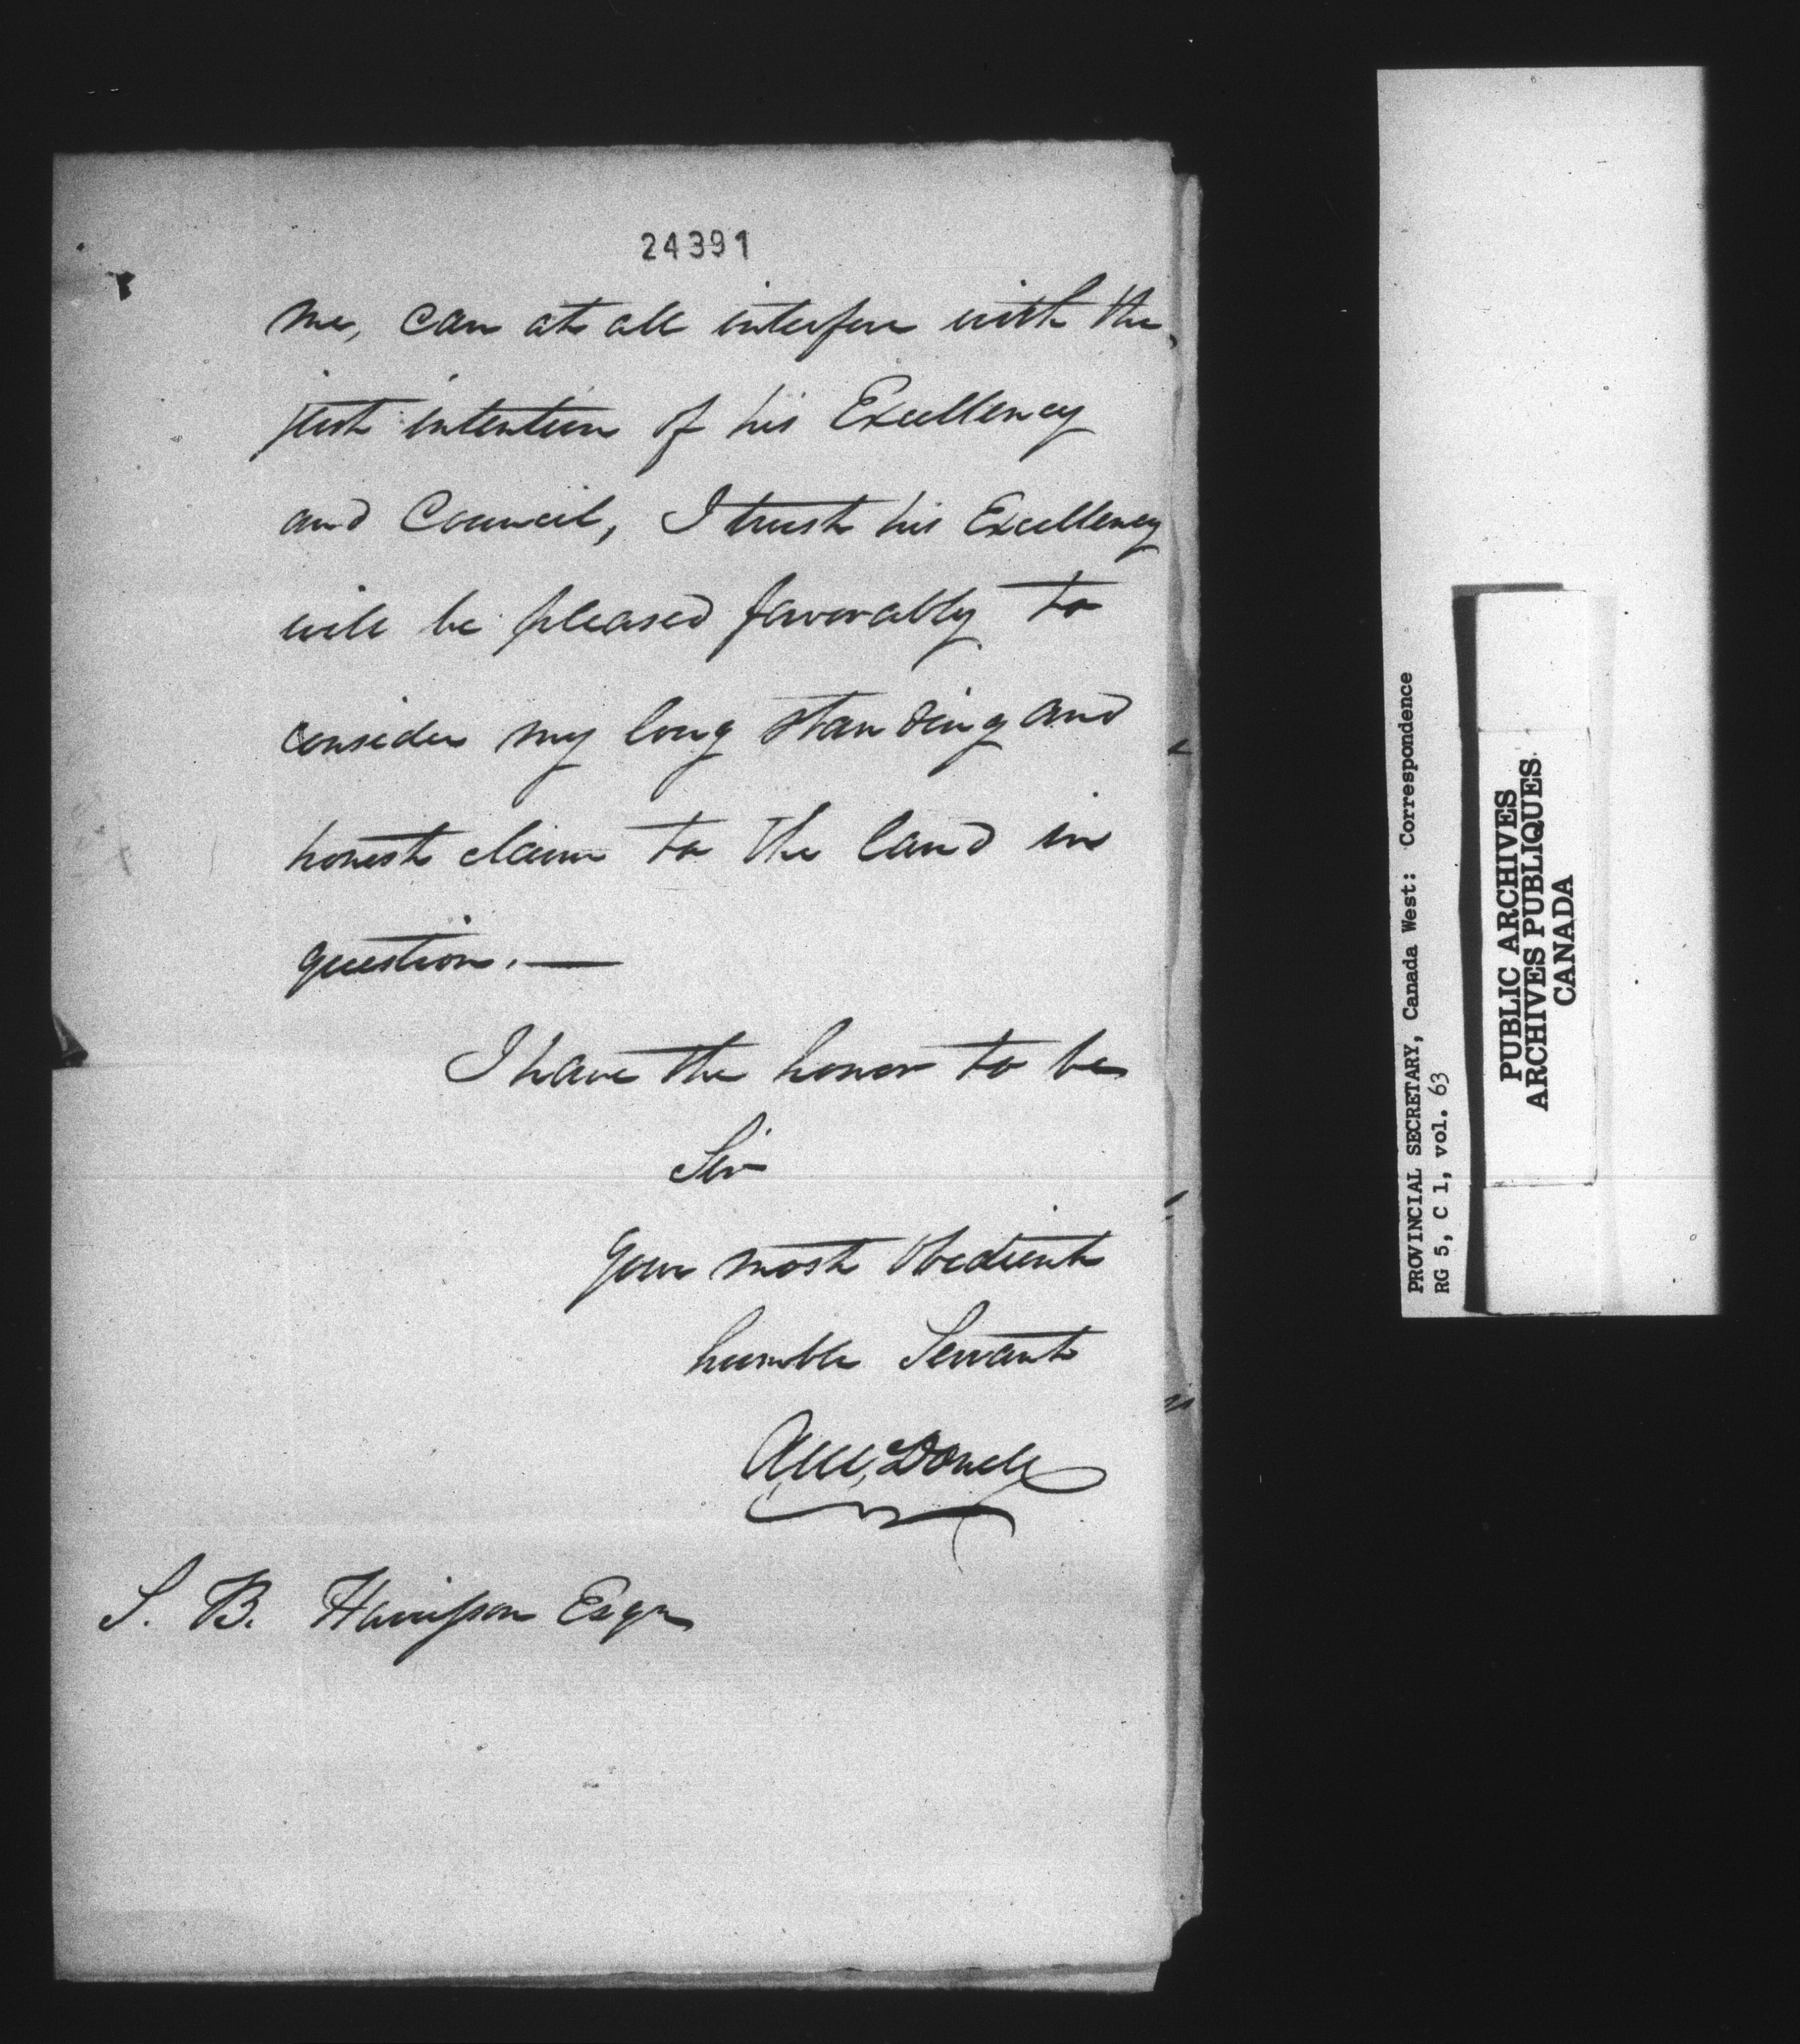 24391
me, can at all interfere with the
just intention of his Excellency
and Council, I trust his Excellency
will be pleased favorably to
consider my long standing and
honest claim to the land in
question. —
I have the honor to be
Sir
Your most obedient
humble Servant
S. B. Harrison Esqr
PROVINCIAL SECRETARY, Canada West: Correspondence
RG 5, C 1, vol. 63
PUBLIC ARCHIVES
ARCHIVES PUBLIQUES
CANADA